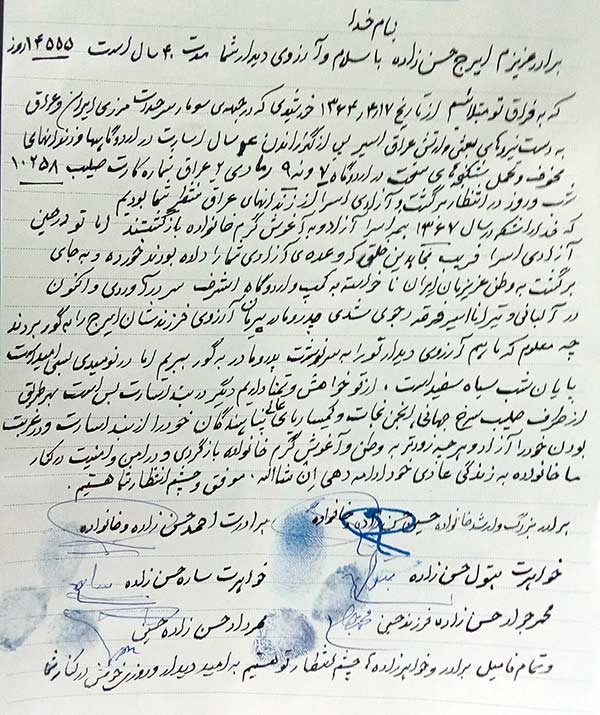 بنام خدا
برادر عزیزم ایرج حسن زاده با سلام و آرزوی دیدار شما مدت ۴۰ سال است ۱۴۵۵۵ روز
که به فراق تو مبتلائیم از تاریخ ۱۳۶۴/۴/۱۷ خورشیدی که در جبهه‌ی سومار سرحدات مرزی ایران و عراق
به دست نیروهای بعثی وارتش عراق اسیر پس از گذراندن ۴ سال اسارت در اردوگاهها و زندانهای
مخوف و تحمل شکنجه‌های سخت در اردوگاه ۷ و نه ۹ رمادی ۲ عراق شماره کارت صلیب ۱۰۲۵۸
شب و روز در انتظار برگشت و آزادی اسرا از زندانهای عراق منتظر شما بودیم
که در سال ۱۳۶۷ اسرا آزاد و به آغوش گرم خانواده بازگشتند اما تو در حین
آزادی اسرا فریب مجاهدین خلق که وعده‌ی آزادی شما را داده بودند خورده و به جای
برگشت به وطن عزیزمان ایران نا خواسته به کمپ و اردوگاه اشرف سر در آوردی و اکنون
در آلبانی و تیرانا اسیر فرقه رجوی شدی پدر و مادر پیرمان آرزوی فرزندشان ایرج را به گور بردند
چه معلوم که ما هم آرزوی دیدار تو را به سرنوشت پدر و مادر به گور ببریم اما در نومیدی بسی امید است
پایان شب سیاه سفید است. از تو خواهش و تمنا داریم دیگر در بند اسارت بس است بهر طریق
از طرف صلیب سرخ جهانی، انجمن نجات و کمیساریای عالی پناهندگان خود را از بند اسارت و در غربت
بودن خود را آزاد و هر چه زودتر به وطن و آغوش گرم خانواده بازگردی و در امن و امنیت در کنار
ما خانواده به زندگی عادی خود ادامه دهی إن شاالله. موفق و چشم انتظار شما هستیم.
برادر بزرگ وارشد خانواده حسین حسن زاده و خانواده برادرت احمد حسن زاده و خانواده
خواهرت بتول حسن زاده خواهرت ساره حسن زاده
محمد جواد حسن زاده فرزند حسین مهرداد حسن زاده حسین
و تمام فامیل برادر و خواهرزاده‌ها چشم انتظار تو هستیم به امید دیدار و روزی خوش در کنار شما